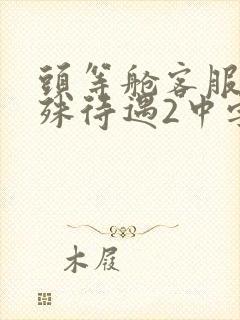 頭等舱客服
殊待遇2中字
木屐